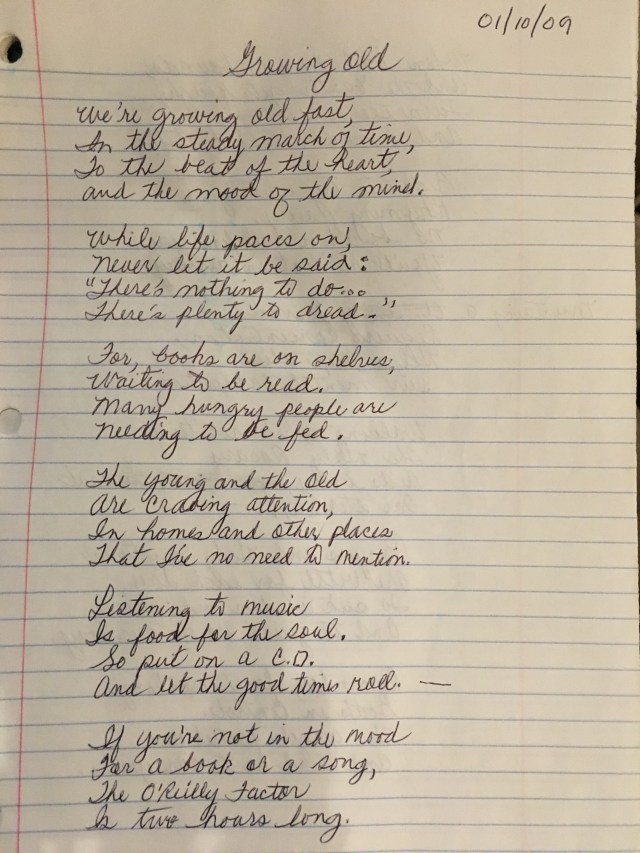 01/10/09
Growing Old
We're growing old fast,
In the steady march of time,
To the beat of the heart,
and the mood of the mind.
While life paces on,
never let it be said:
"There's nothing to do...
There's plenty to dread."
For, books are on shelves,
Waiting to be read.
Many hungry people are
needing to be fed.
The young and the old
are craving attention,
In homes and other places
That I've no need to mention.
Listening to music
Is food for the soul.
So put on a C.D.
And let the good times roll. —
If you're not in the mood
For a book or a song,
The O'Reilly Factor
Is two hours long.